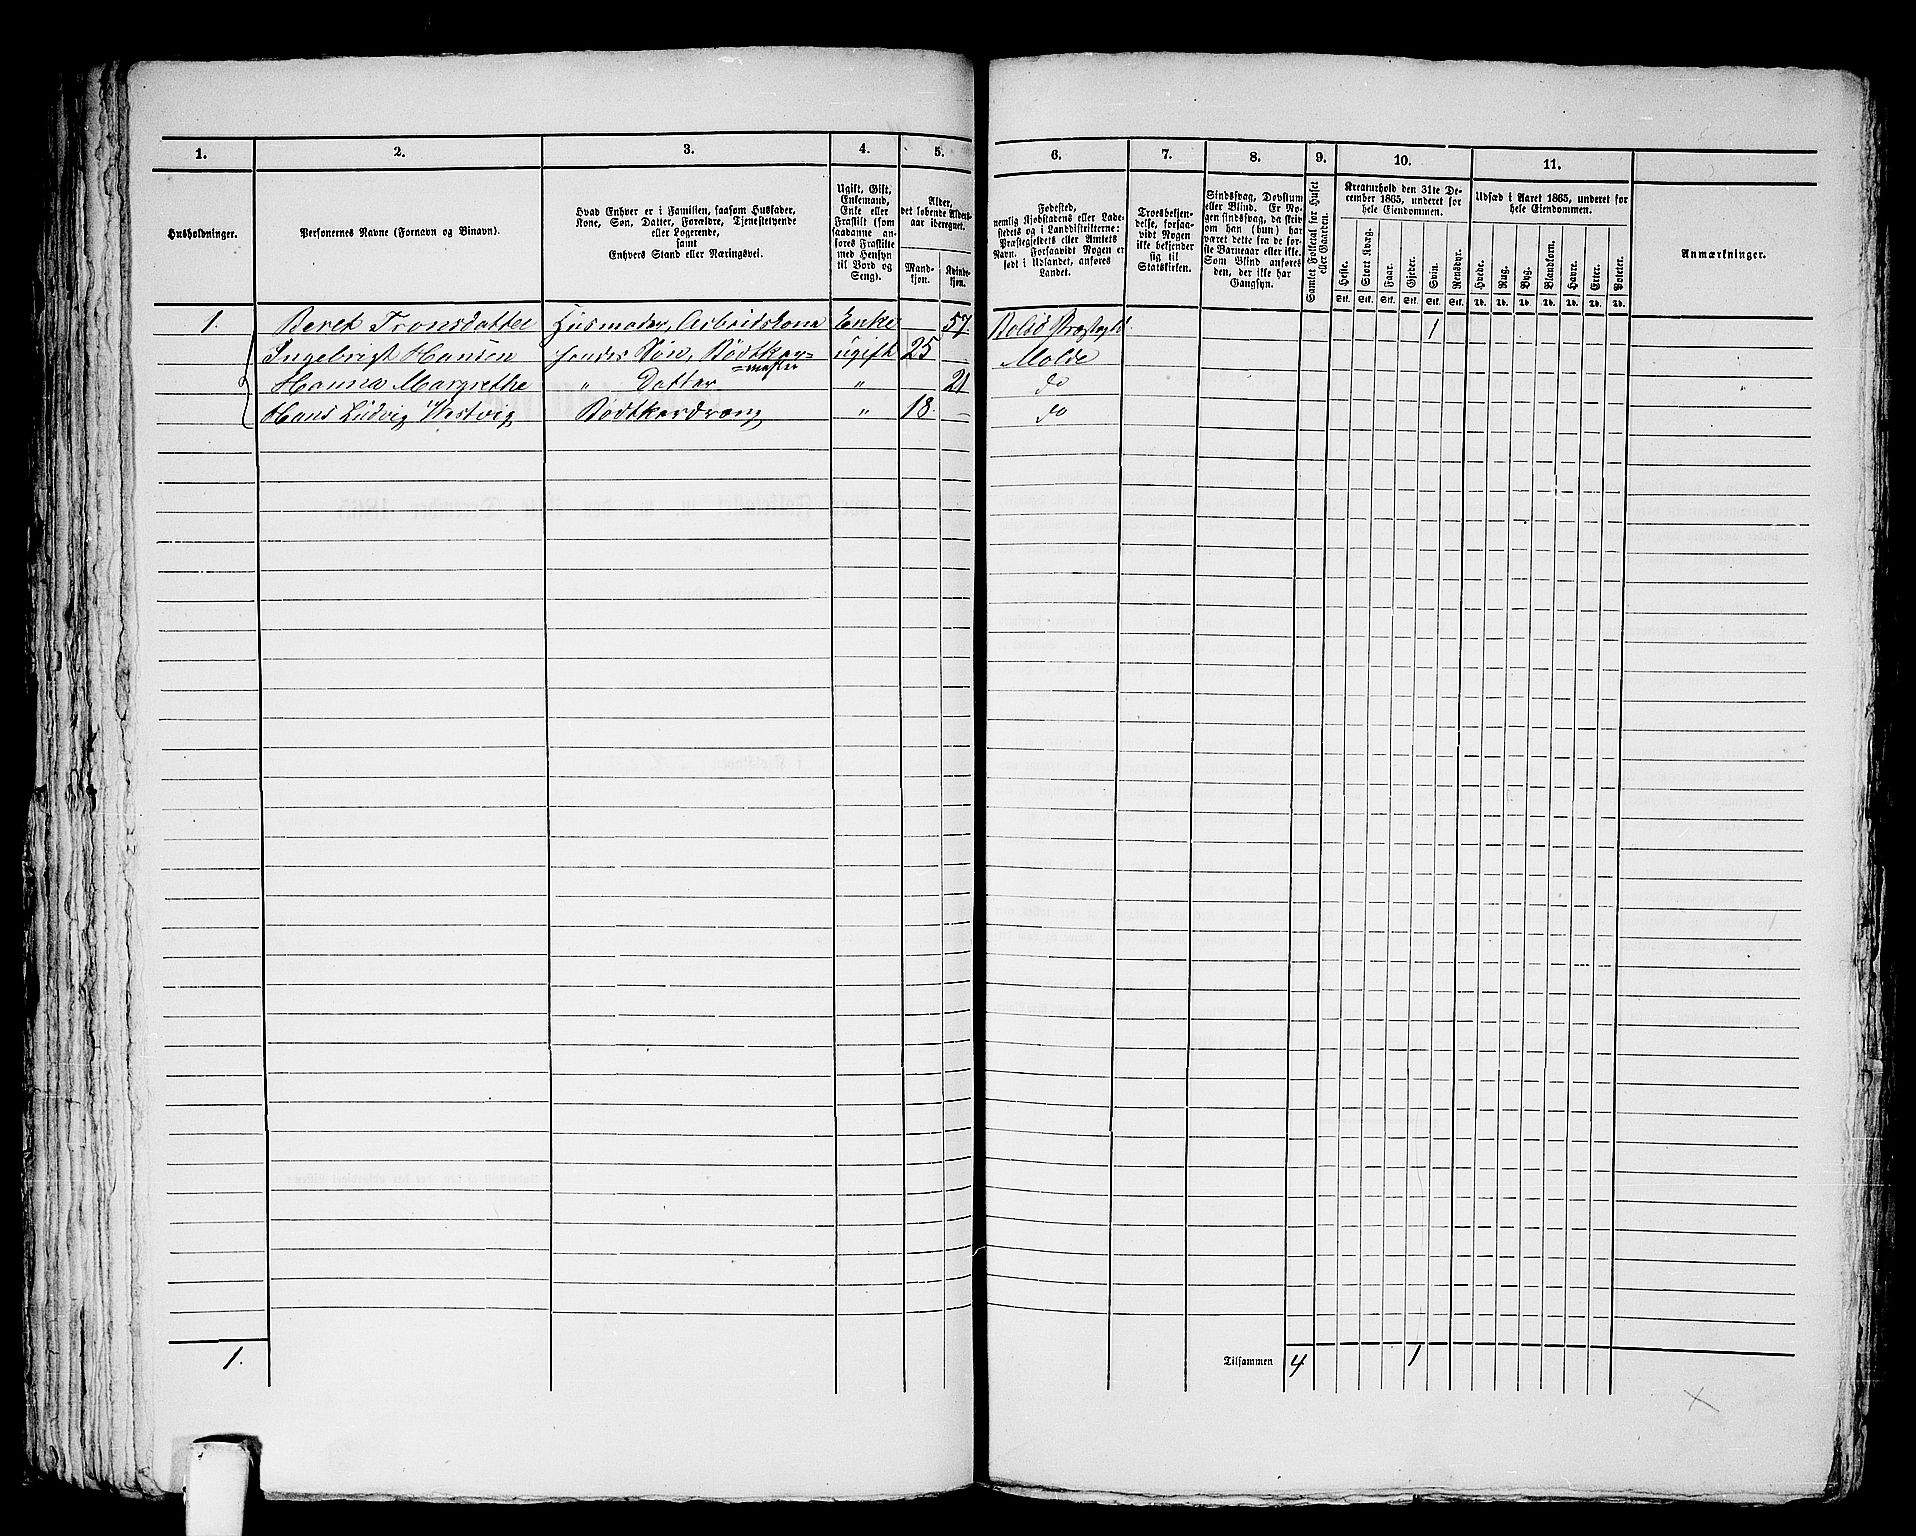 1. 2. 3. 4. 5. 6. 7. 8. 9. 10. 11.
Husholdninger.
Personernes Navne (Fornavn og Binavn).
Hvad Enhver er i Familien, saasom Husfader,
Kone, Søn, Datter, Forældre, Tjenestetyende
eller Logerende,
samt
Enhvers Stand eller Næringsvei.
Ugift, Gift,
Enkemand,
Enke eller
Fraskilt (som
saadanne an-
føres Fraskilte
med Hensyn
til Bord og
Seng).
Alder,
det løbende Alders-
aar iberegnet.
Mand-
kjøn.
Kvinde-
kjøn.
Fødested,
nemlig Kjøbstadens eller Lade-
stedets og i Landdistrikterne:
Præstegjeldets eller Amtets
Navn. Forsaavidt Nogen er
født i Udlandet, anføres
Landet.
Troesbekjen-
delse, forsaa-
vidt Nogen
ikke bekjender
sig til
Statskirken.
Sindssvag, Døvstum
eller Blind. Er No-
gen sindssvag, da skriv
om han (hun) har
været dette fra de før-
ste Barneaar eller ikke.
Som Blind anføres
den, der ikke har
Gangsyn.
Samlet Folketal for Huset
eller Gaarden.
Kreaturhold den 31te De-
cember 1865, underet for
hele Eiendommen.
Heste. Stort Kvæg. Faar. Gjeder. Svin. Rensdyr.
Stk. Stk. Stk. Stk. Stk. Stk.
Udsæd i Aaret 1865, underet for
hele Eiendommen.
Hvede. Rug. Byg. Blandkorn. Havre. Erter. Poteter.
Td. Td. Td. Td. Td. Td. Td.
Anmærkninger.
1. Beret Tronsdatter Husmoder, Arbeidskone Enke 57 Bolsø Præstegld. 1
Ingebrigt Hansen hendes Søn, Bødtker= ugift 25 Molde
=mester
Hanna Margrethe " Datter " 21 do
Hans Ludvig Westvig Bødtkerdreng " 18 do
1. Tilsammen 4 1